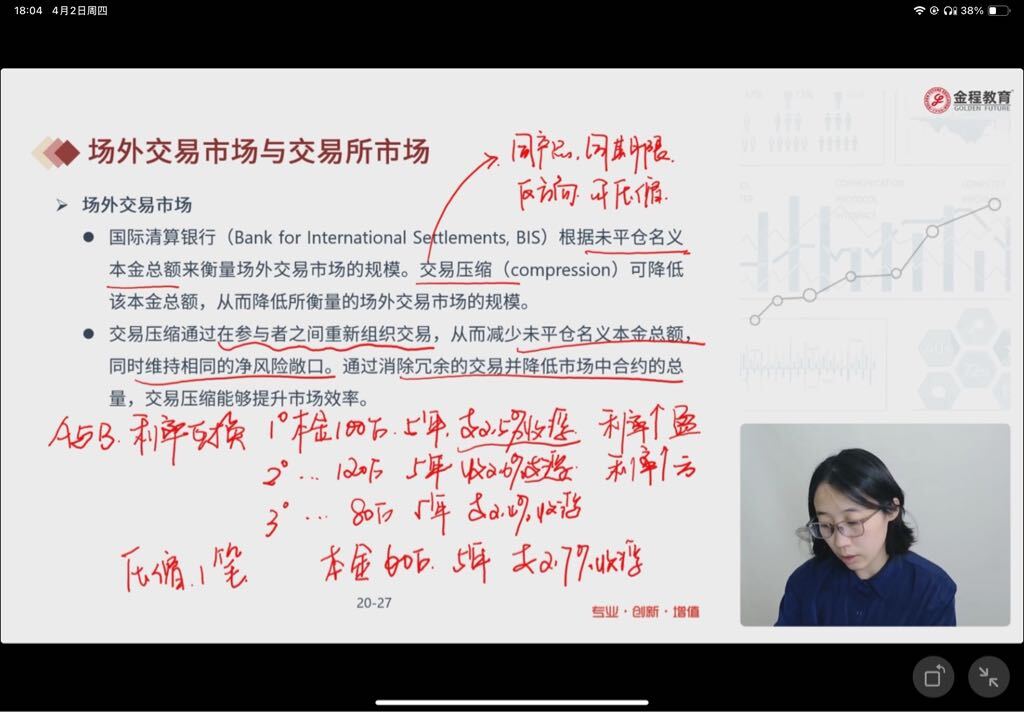 18:04 4月2日周四
38%
金程教育
GOLDEN FUTURE
场外交易市场与交易所市场
同产品, 同期限,
反方向 可压缩.
场外交易市场
国际清算银行（Bank for International Settlements, BIS）根据未平仓名义
本金总额来衡量场外交易市场的规模。交易压缩（compression）可降低
该本金总额，从而降低所衡量的场外交易市场的规模。
交易压缩通过在参与者之间重新组织交易，从而减少未平仓名义本金总额，
同时维持相同的净风险敞口。通过消除冗余的交易并降低市场中合约的总
量，交易压缩能够提升市场效率。
A与B. 利率互换 1° 本金100万. 5年, 支2.5%收浮. 利率↑盈
2° ... 120万 5年 收2.6%支浮. 利率↑亏
3° ... 80万 5年 支2. %, 收浮
压缩. 1笔. 本金60万. 5年 支2.7%, 收浮
20-27
专业·创新·增值